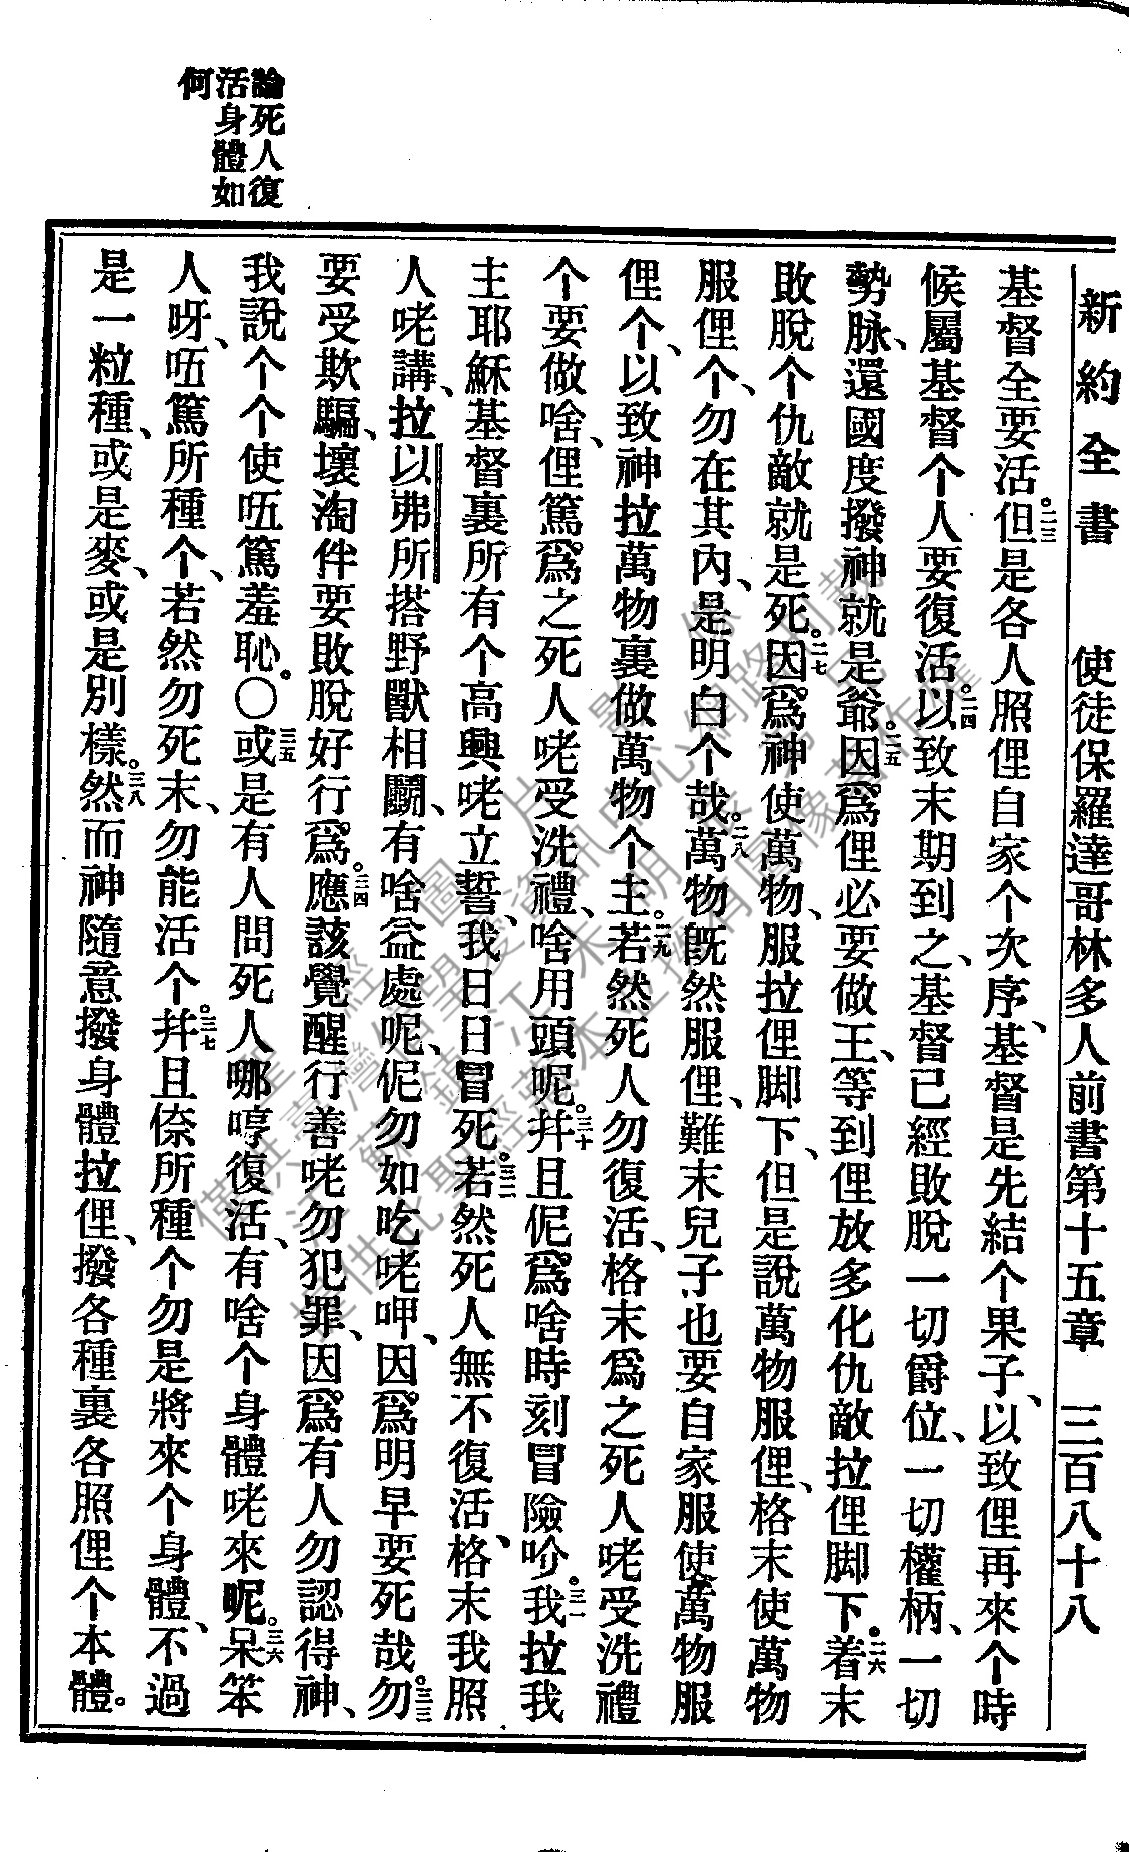 新約全書 使徒保羅達哥林多人前書第十五章 三百八十八
基督全要活。二三但是各人照俚自家个次序、基督是先結个果子、以致俚再來个時
候屬基督个人要復活。二四以致末期到之、基督已經敗脫一切爵位、一切權柄、一切
勢脉、還國度撥神就是爺。二五因爲俚必要做王、等到俚放多化仇敵拉俚脚下。二六着末
敗脫个仇敵就是死。二七因爲神使萬物、服拉俚脚下、但是說萬物服俚、格末使萬物
服俚个、勿在其內、是明白个哉。二八萬物旣然服俚、難末兒子也要自家服使萬物服
俚个、以致神拉萬物裏做萬物个主。二九若然死人勿復活、格末爲之死人咾受洗禮
个要做啥、俚篤爲之死人咾受洗禮、啥用頭呢。三十幷且伲爲啥時刻冒險吤。三一我拉我
主耶穌基督裏所有个高興咾立誓、我日日冒死。三二若然死人無不復活、格末我照
人咾講、拉以弗所搭野獸相鬬、有啥益處呢、伲勿如吃咾呷、因爲明早要死哉。三三勿
要受欺騙、壞淘伴要敗脫好行爲。三四應該覺醒行善咾勿犯罪、因爲有人勿認得神、
我說个个使㑚篤羞恥。〇三五或是有人問死人哪哼復活、有啥个身體咾來呢。三六呆笨
人呀、㑚篤所種个、若然勿死末、勿能活个。三七幷且倷所種个勿是將來个身體、不過
是一粒種、或是麥、或是別樣。三八然而神隨意撥身體拉俚、撥各種裏各照俚个本體。
論死人復
活身體如
何